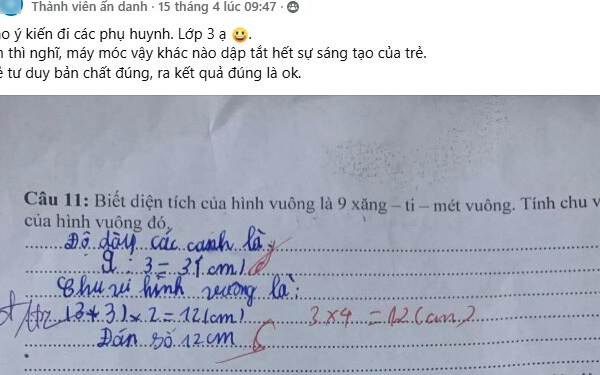 Thành viên ẩn danh · 15 tháng 4 lúc 09:47 ·
o ý kiến đi các phụ huynh. Lớp 3 ạ 😀.
thì nghĩ, máy móc vậy khác nào dập tắt hết sự sáng tạo của trẻ.
tư duy bản chất đúng, ra kết quả đúng là ok.
Câu 11: Biết diện tích của hình vuông là 9 xăng – ti – mét vuông. Tính chu v
của hình vuông đó.
Độ dày các canh là
9 : 3 = 3 (cm)
Chu vi hình vuông là:
(3 + 3) x 2 = 12 (cm) 3 x 4 = 12 (cm)
Đán số 12 cm